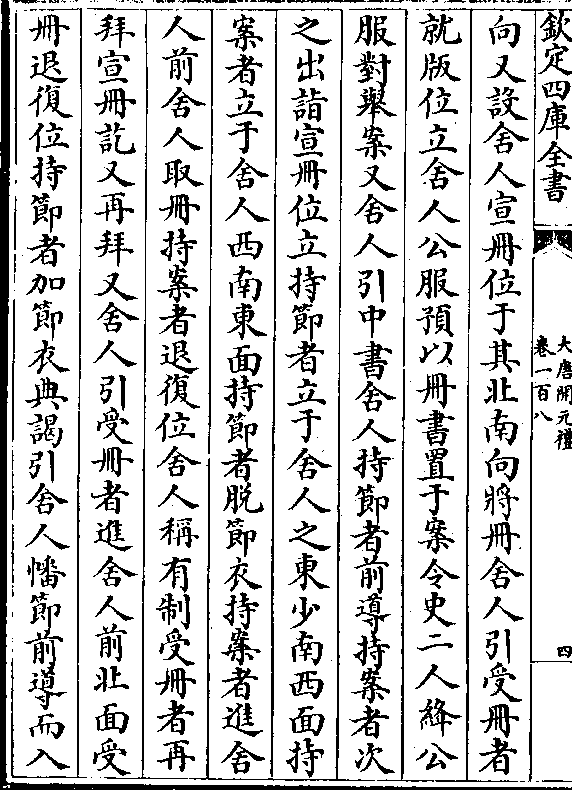 欽定四庫全書
大唐開元禮
卷一百八
四
向又設舍人宣冊位于其北南向將冊舍人引受冊者
就版位立舍人公服預以冊書置于案令史二人絳公
服對舉案又舍人引中書舍人持節者前導持案者次
之出詣宣冊位立持節者立于舍人之東少南西面持
案者立于舍人西南東面持節者脫節衣持案者進舍
人前舍人取冊持案者退復位舍人稱有制受冊者再
拜宣冊訖又再拜又舍人引受冊者進舍人前北面受
冊退復位持節者加節衣典謁引舍人幡節前導而入